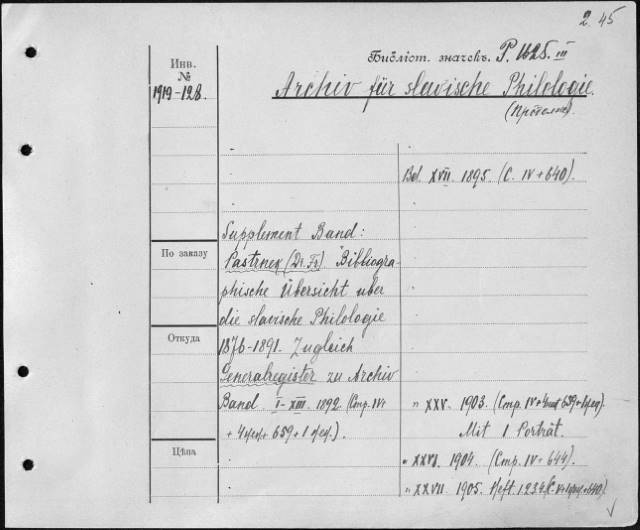 2.45
Библіот. значекъ. P. 1625. III
Инв.
№
1919-128.
Archiv für slavische Philologie.
Bd. XVII. 1895. (С. IV+640).
Supplement Band:
Pastrnek (Dr. Fr.) Bibliogra-
phische Übersicht uber
die slavische Philologie
1876-1891. Zugleich
Generalregister zu Archiv
Band. I-XIII. 1892. (Стр. IV+
+ 4 + 659 + 1).
По заказу
Откуда
Цѣна
„ XXV. 1903. (Стр. IV+ 659+
Mit 1 Porträt.
„ XXVI. 1904. (Стр. IV+644).
„ XXVII. 1905. Heft. 1 2 3 4 640).